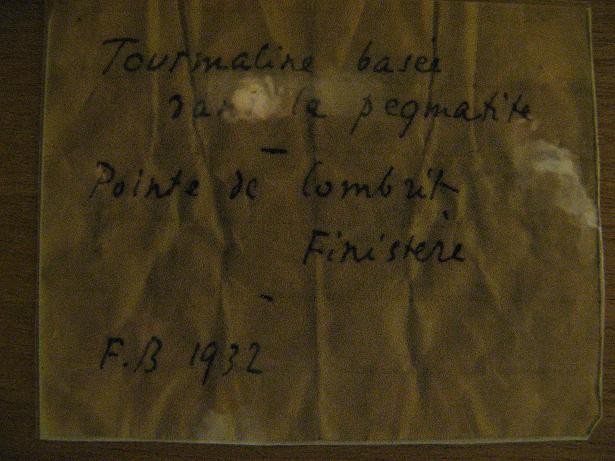 Tourmaline basée
dans la pegmatite
Pointe de Combrit
Finistère
F.B 1932